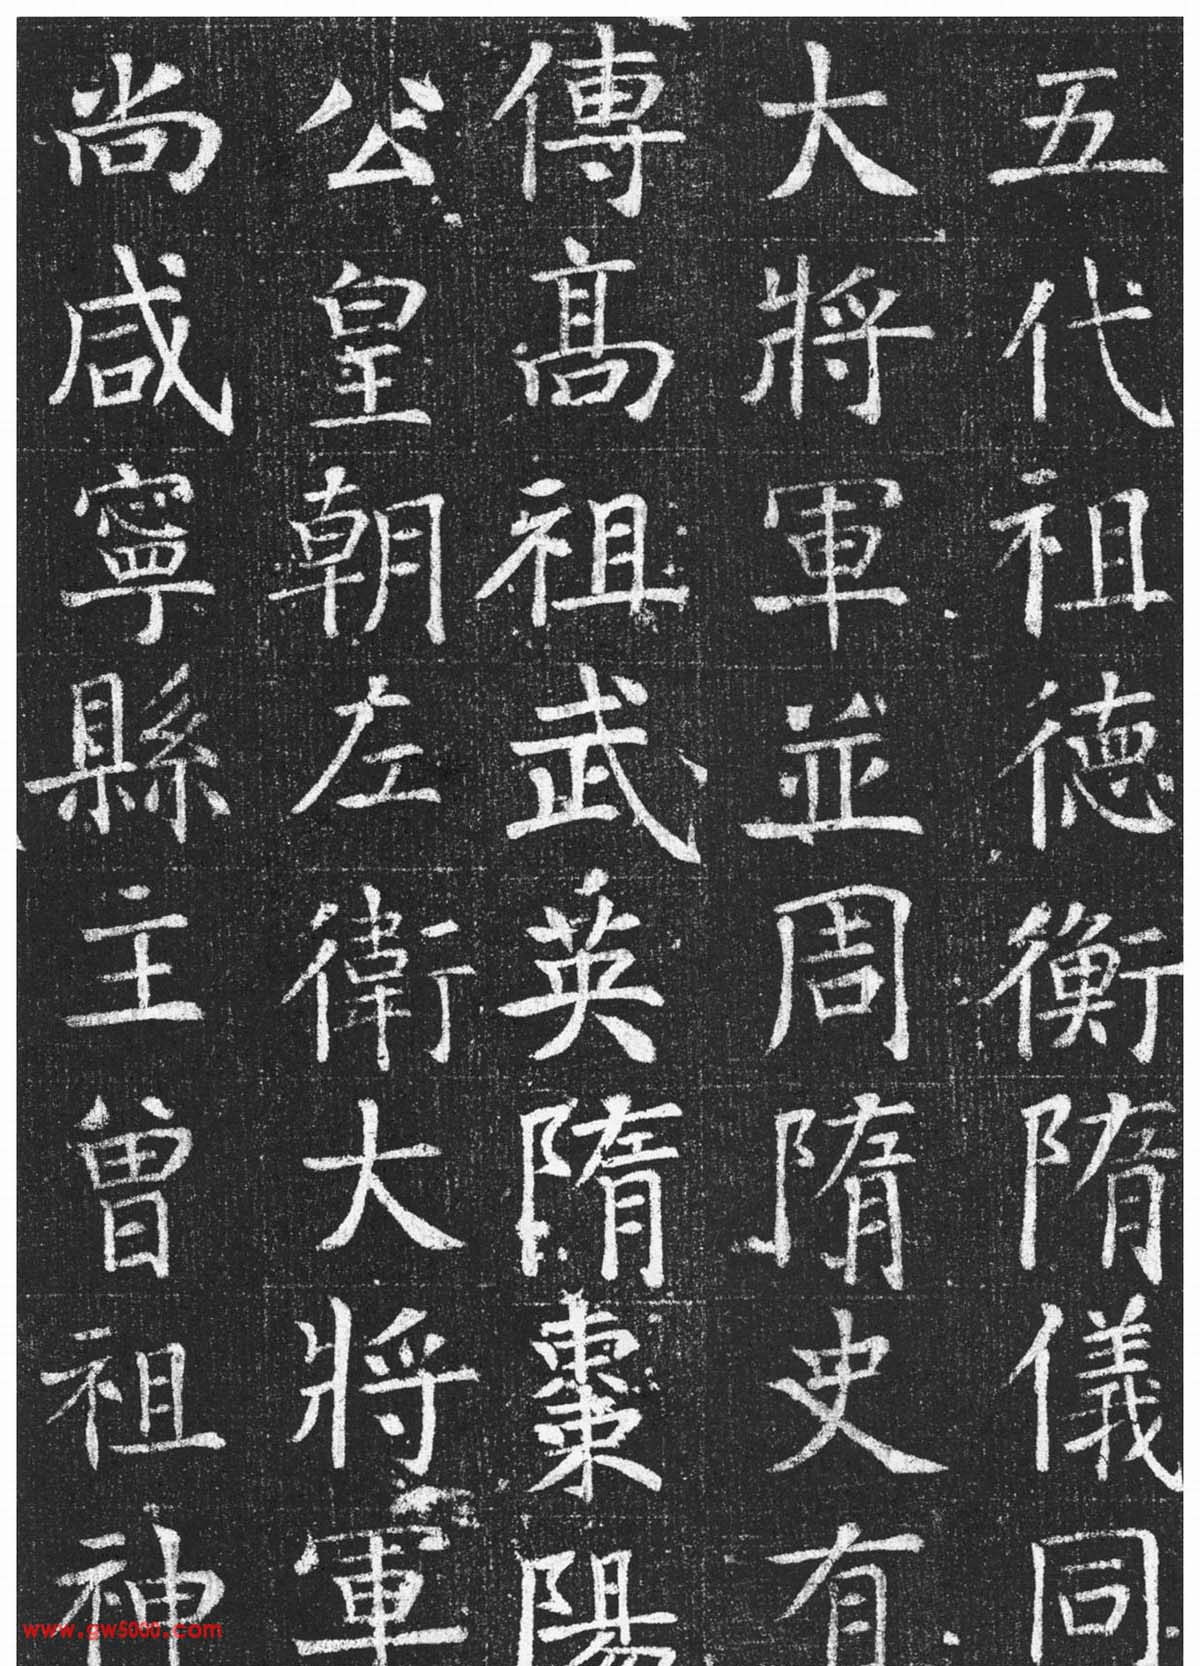 五代祖德衡隋儀同
大將軍並周隋史有
傳高祖武英隋棗陽
公皇朝左衛大將軍
尚咸寧縣主曾祖神
www.gw5000.com